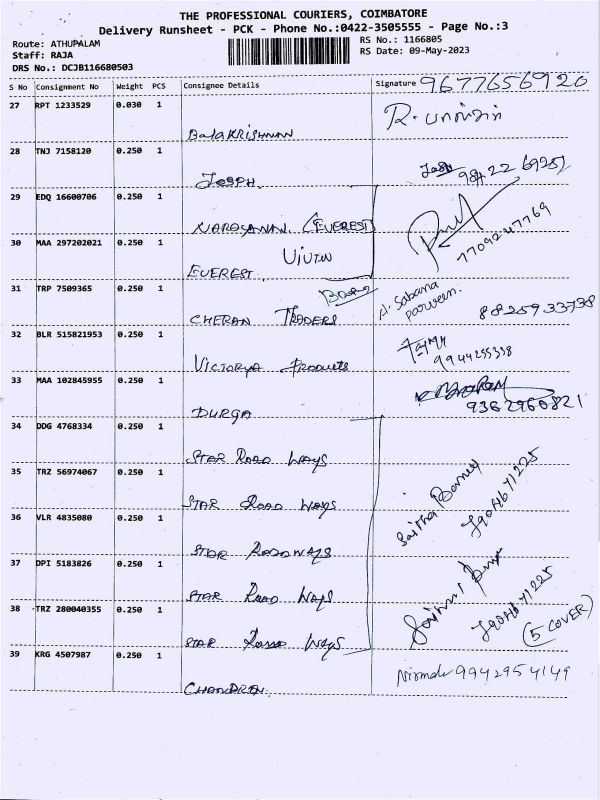 THE PROFESSIONAL COURIERS, COIMBATORE
Delivery Runsheet - PCK - Phone No.:0422-3505555 - Page No.:3
Route: ATHUPALAM
Staff: RAJA
DRS No.: DCJB116680503
RS No.: 1166805
RS Date: 09-May-2023
S No Consignment No Weight PCS Consignee Details Signature 9677656920
27 RPT 1233529 0.030 1
BALAKRISHNAN R.
28 TNJ 7158120 0.250 1
JOSEPH
29 EDQ 16600706 0.250 1
NARAYANAN (EVEREST)
30 MAA 297202021 0.250 1
EVEREST 7709247769
31 TRP 7509365 0.250 1
CHERAN TRADERS A. Sabana parveen 8825933738
32 BLR 515821953 0.250 1
VICTORYA PRODUCTS 9944255338
33 MAA 102845955 0.250 1
DURGA 9362960821
34 DDG 4768334 0.250 1
STAR ROAD WAYS
35 TRZ 56974067 0.250 1
STAR ROAD WAYS
36 VLR 4835080 0.250 1
STAR ROADWAYS
37 DPI 5183826 0.250 1
STAR ROAD WAYS
38 TRZ 280040355 0.250 1
STAR ROAD WAYS (5 COVER)
39 KRG 4507987 0.250 1
CHANDRAN Nirmala 9942954149